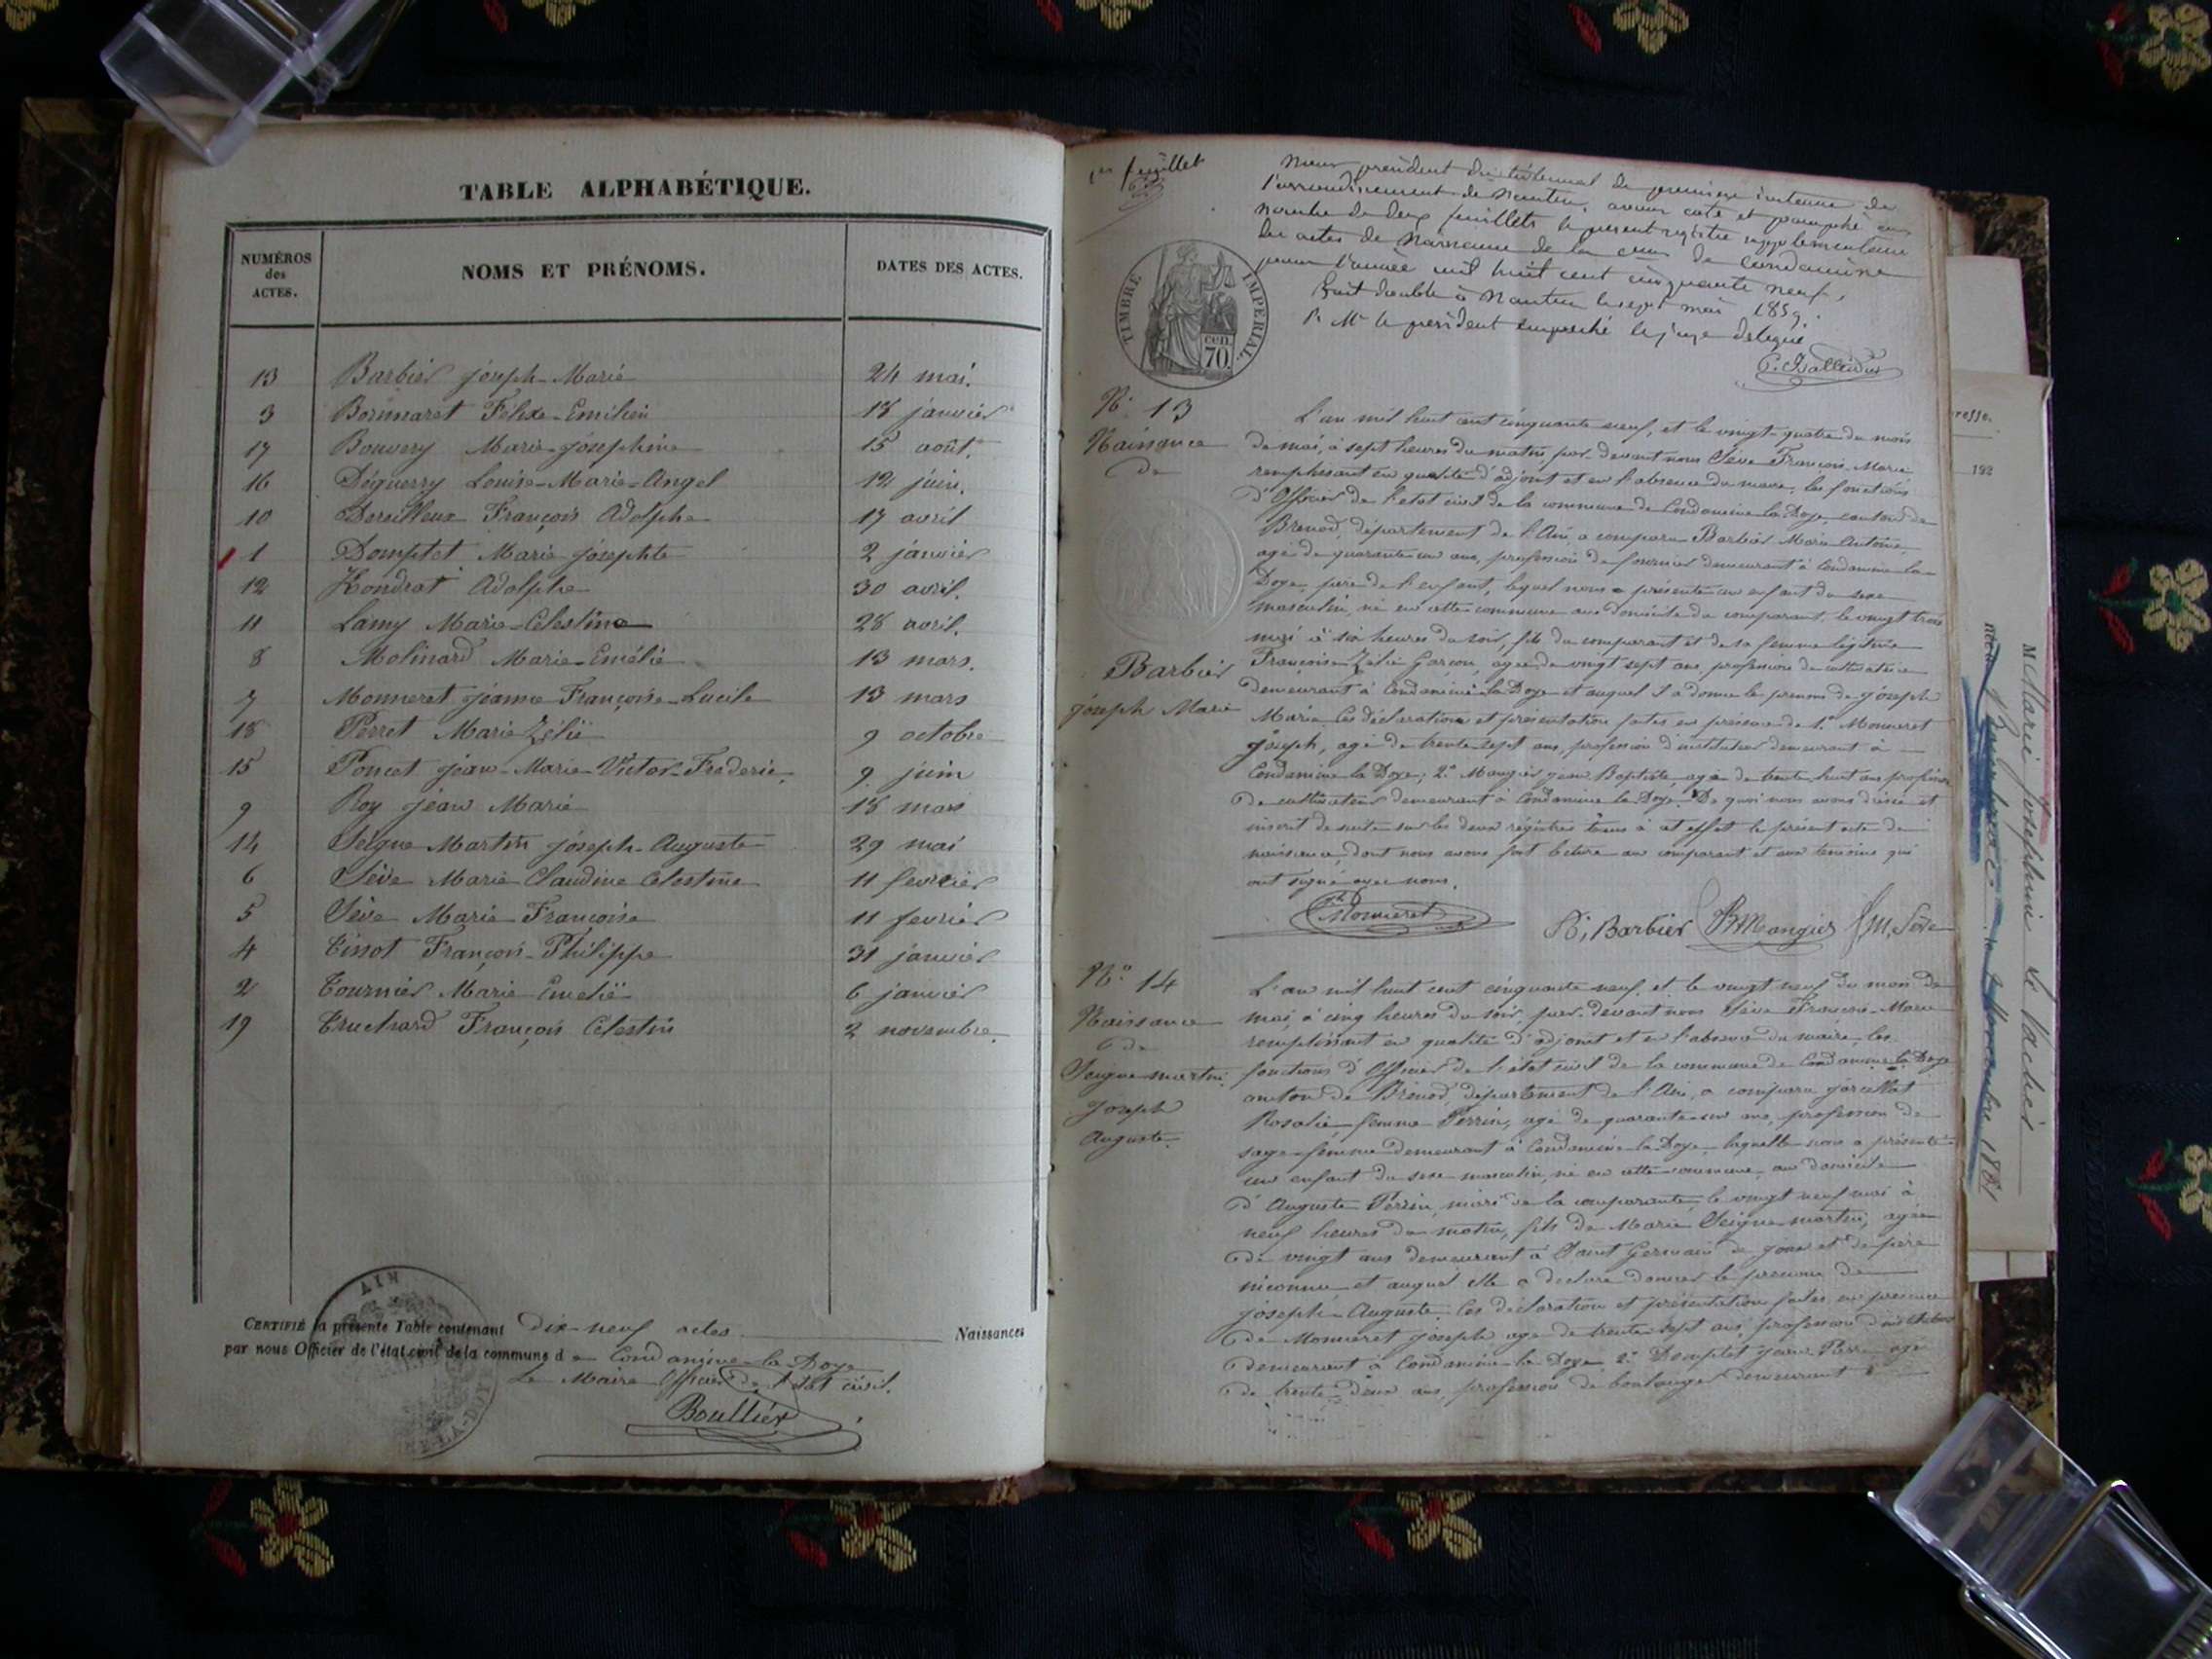 TABLE ALPHABÉTIQUE.
NUMÉROS des ACTES.
NOMS ET PRÉNOMS.
DATES DES ACTES.
13 Barbier joseph-Marie 24 mai.
3 Bonmaret Félixe-Emilien 18 janvier
17 Bouvery Marie-joséphine 15 août.
16 Déguerry Louise-Marie-Angel 12 juin.
10 François Adolphe 17 avril
1 Domptet Marie josephte 2 janvier
12 Kondrat Adolphe 30 avril.
11 Lamy Marie-Célestine 28 avril.
8 Molinard Marie-Emélie 13 mars.
7 Monneret jéanne Françoise-Lucile 13 mars
18 Perret Marie Zélië 9 octobre
15 Poncet jean-Marie-Victor-Fréderic 9 juin
9 Roy jéan Marie 18 mars
14 Seigne Martin joseph-Auguste 29 mai
6 Sève Marie Claudine Celestine 11 fevrier
5 Sève Marie Françoise 11 fevrier
4 Tissot François-Philippe 31 janvier
2 Tournier Marie Emelië 6 janvier
19 Truchard François Célestin 2 novembre.
CERTIFIÉ la présente Table contenant Dix-neuf actes Naissances
par nous Officier de l'état civil de la commune de Condamine-la-Doye
Le Maire Officier de l'état civil.
Boullier
AIN
1er feuillet
Nous président du tribunal de premiere instance de
l'arrondissement de Nantua, avons coté et paraphé au
nombre de deux feuillets le present registre supplementaire
des actes de Naissance de la de Condamine
pour l'année mil huit cent cinquante neuf,
Fait double à Nantua le sept mai 1859.
Pr Mr le president empeché le juge delegué
TIMBRE IMPERIAL.
cen. 70.
N° 13
Naissance
de
Barbier
joseph Marie
L'an mil huit cent cinquante neuf, et le vingt-quatre du mois
de mai, à sept heures du matin, par devant nous Sève François-Marie
remplissant en qualité d'adjoint et en l'absence du maire, les fonctions
d'Officier de l'état civil de la commune de Condamine-la-Doye, canton de
Brenod, département de l'Ain, a comparu Barbier Marie Antoine,
agé de quarante un ans, profession de fournier demeurant à Condamine-la-
Doye, père de l'enfant, lequel nous a présenté un enfant du sexe
masculin, né en cette commune au domicile du comparant, le vingt trois
mai à six heures du soir, fils du comparant et de sa femme légitime
Françoise Zélie Garçon, agée de vingt sept ans, profession de cultivatrice
demeurant à Condamine-la-Doye et auquel il a donné le prenom de joseph
Marie. Ces déclaration et présentation faites en présence de 1° Monneret
joseph, agé de trente-sept ans, profession d'instituteur demeurant à
Condamine la Doye; 2° Mangier jean Baptiste, agé de trente huit ans profession
de cultivateur demeurant à Condamine-la-Doye. De quoi nous avons dressé et
inscrit de suite sur les deux registres tenus à cet effet le présent acte de
naissance, dont nous avons fait lecture au comparant et aux temoins qui
ont signé avec nous.
Monneret Barbier JB Mangier fm, Sève
N° 14
Naissance
de
Seigne martin
joseph
Auguste.
L'an mil huit cent cinquante neuf, et le vingt neuf du mois de
mai, à cinq heures du soir, par devant nous Sève François-Marie
remplissant en qualité d'adjoint et en l'absence du maire, les
fonctions d'Officier de l'état civil de la commune de Condamine-la-Doye
canton de Brénod, département de l'Ain, a comparu
Rosalie, femme Perrin, agé de quarante-un ans, profession de
sage-femme demeurant à Condamine-la-Doye, laquelle nous a présenté
un enfant du sexe masculin, né en cette commune, au domicile
d'Auguste Perrin, mari de la comparante, le vingt neuf mai à
neuf heures du matin, fils de Marie Seigne martin, agée
de vingt ans demeurant à Saint Germain de joux et de père
inconnu et auquel elle a déclaré donner le prenom de
joseph-Auguste. Ces déclaration et présentation faites en présence
de Monneret joseph agé de trente-sept ans, profession d'instituteur
demeurant à Condamine la Doye, 2° Domptet jean Pierre agé
de trente-deux ans, profession de boulanger demeurant à
resse.
192
M Marie josephine Le Vachier
née à le 2 Novembre 1881